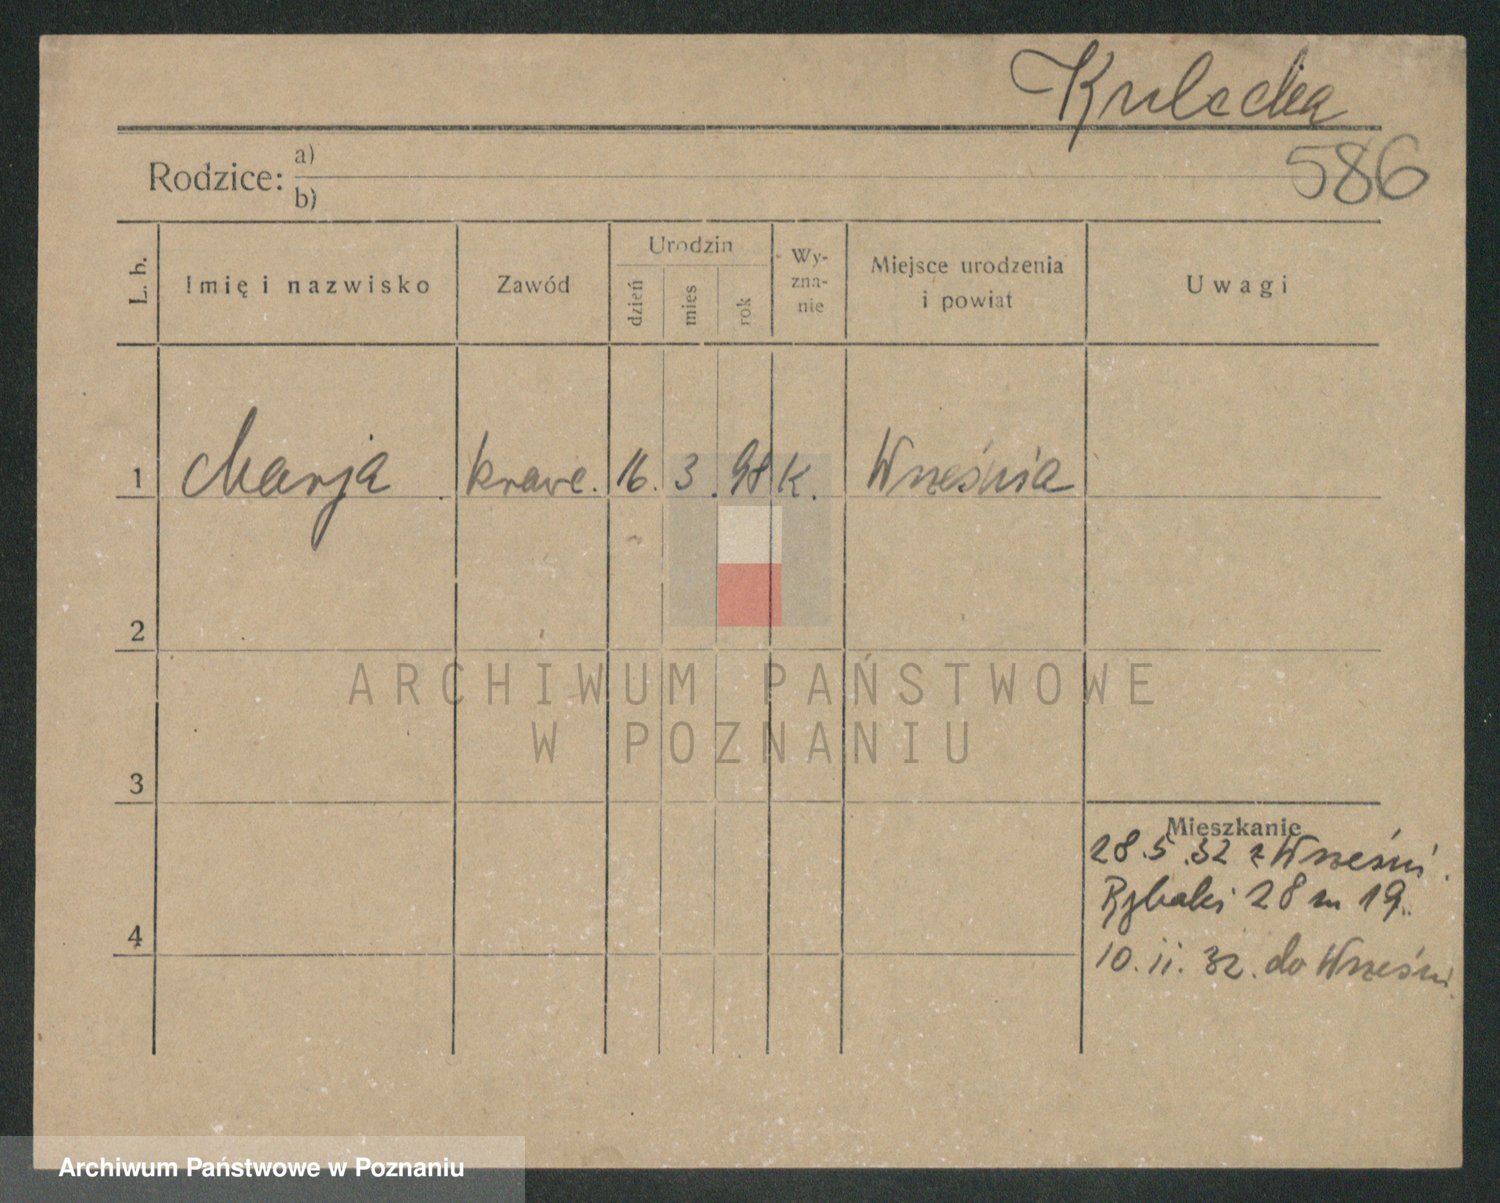 Kulecka
586
Rodzice: a)
b)
L. b.
Imię i nazwisko
Zawód
Urodzin
dzień
mies
rok
Wy-
zna-
nie
Miejsce urodzenia
i powiat
Uwagi
1 Marja krawc. 16. 3. 98 K. Września
2
3
4
Mieszkanie
28.5.32 z Wrześni.
Rybaki 28 m 19.
10.ii.32. do Wrześni.
ARCHIWUM PAŃSTWOWE
W POZNANIU
Archiwum Państwowe w Poznaniu